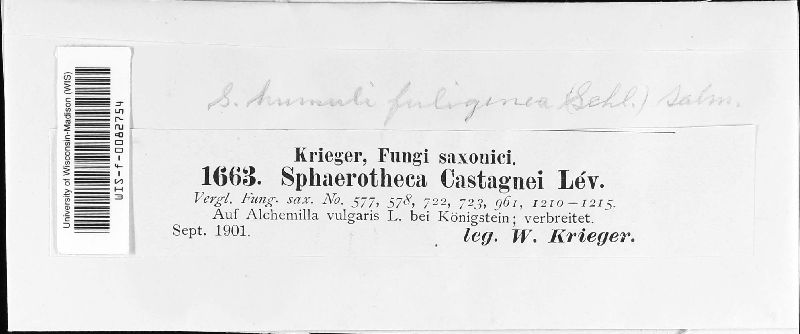 University of Wisconsin-Madison (WIS)
WIS-f-0082754
S. humuli fuliginea (Schl.) Salm.
Krieger, Fungi saxonici.
1663. Sphaerotheca Castagnei Lév.
Vergl. Fung. sax. No. 577, 578, 722, 723, 961, 1210—1215.
Auf Alchemilla vulgaris L. bei Königstein; verbreitet.
Sept. 1901.
leg. W. Krieger.